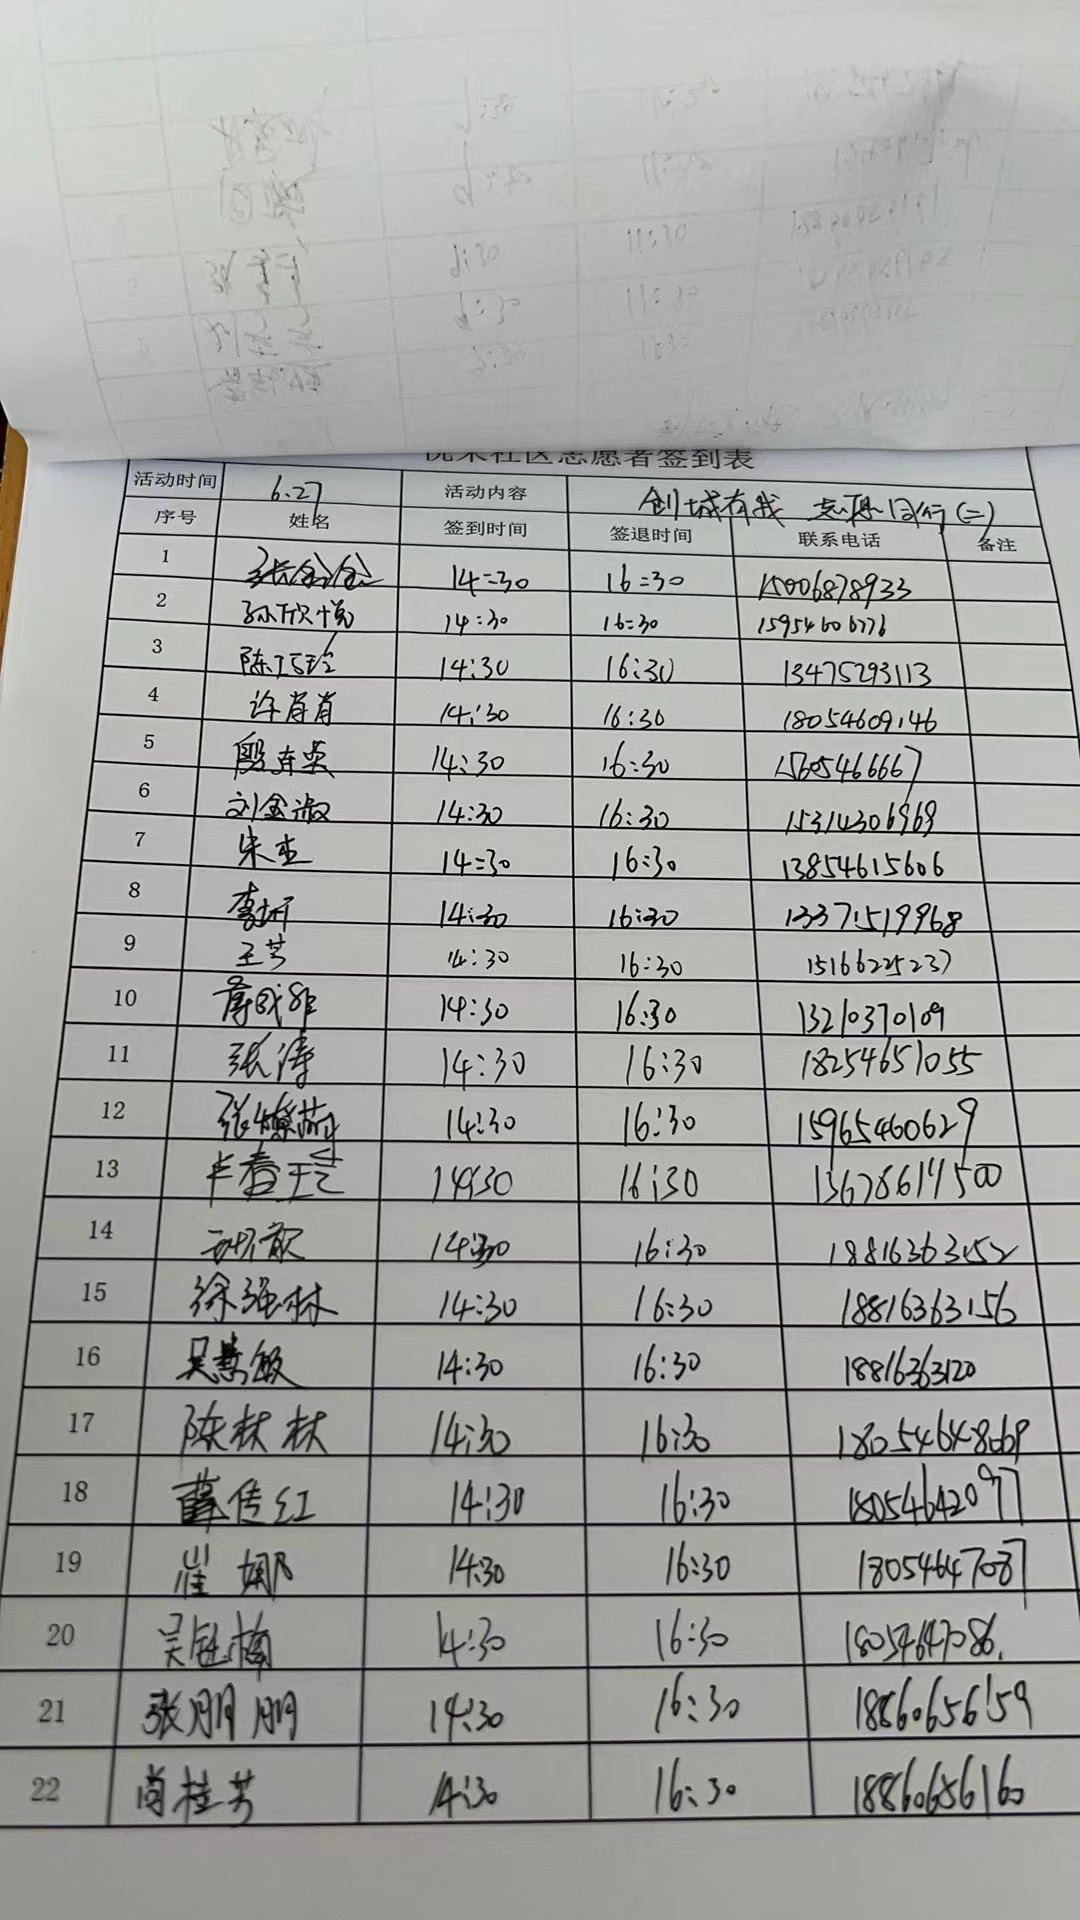 社区志愿者签到表
活动时间 6.27 活动内容 创城有我 志愿同行(二)
序号 姓名 签到时间 签退时间 联系电话 备注
1 张会会 14=30 16=30 15006878933
2 孙欣悦 14:30 16=30 15954606776
3 陈巧玲 14:30 16:30 13475293113
4 许肖肖 14:30 16:30 18054609146
5 殷连英 14:30 16:30 1560546667
6 刘金淑 14:30 16:30 15314306969
7 朱杰 14=30 16:30 13854615606
8 李妍 14:30 16:30 13371519968
9 王芳 14:30 16:30 15166225237
10 14:30 16:30 13210370109
11 张涛 14:30 16:30 18254651055
12 张 14:30 16:30 15965460629
13 14:30 16:30
14 14:30 16:30 18816363152
15 徐强林 14:30 16:30 18816363156
16 吴慧敏 14:30 16:30 18816363120
17 陈林林 14:30 16:30 18054648069
18 薛传红 14:30 16:30 18054642097
19 崔娜 14:30 16:30 18054647087
20 吴钰梅 14:30 16:30 18054647086.
21 张朋朋 14:30 16:30 18860656159
22 尚桂芳 14:30 16:30 18860656160